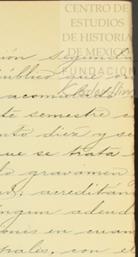 CENTRO DE
ESTUDIOS
DE HISTORIA
DE MEXICO
FUNDACIÓN
ión segunda
público que
acomula
te semestre
nto diez y s
que se trata
lo gravamen
o, acreditán
ingun adeud
onis en cuan
rales, con e